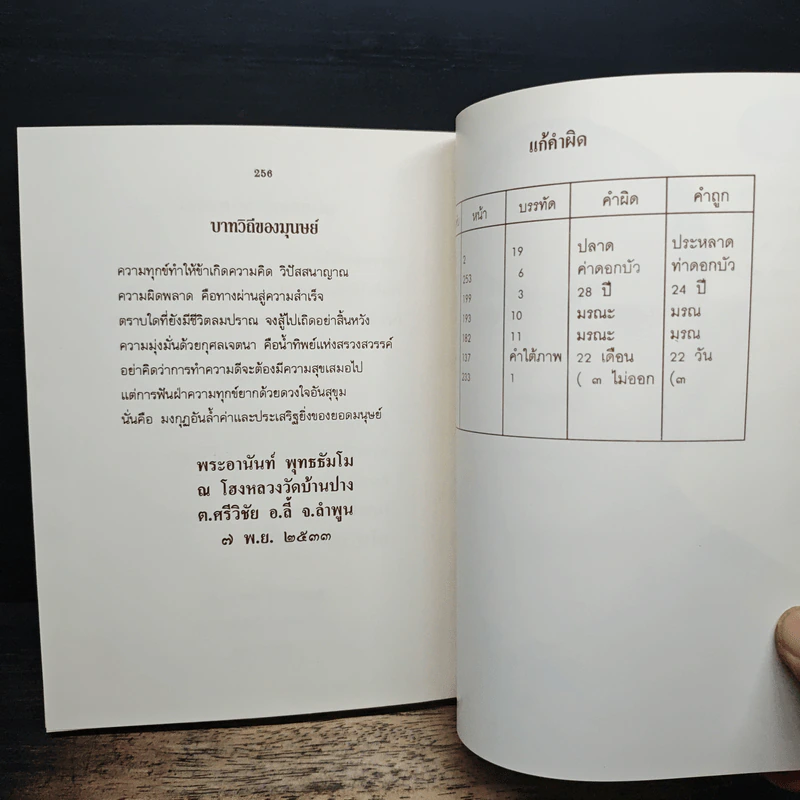 256
บาทวิถีของมนุษย์
ความทุกข์ทำให้ข้าเกิดความคิด วิปัสสนาญาณ
ความผิดพลาด คือทางผ่านสู่ความสำเร็จ
ตราบใดที่ยังมีชีวิตลมปราณ จงสู้ไปเถิดอย่าสิ้นหวัง
ความมุ่งมั่นด้วยกุศลเจตนา คือน้ำทิพย์แห่งสรวงสวรรค์
อย่าคิดว่าการทำความดีจะต้องมีความสุขเสมอไป
แต่การฟันฝ่าความทุกข์ยากด้วยดวงใจอันสุขุม
นั่นคือ มงกุฏอันล้ำค่าและประเสริฐยิ่งของยอดมนุษย์
พระอานันท์ พุทธธัมโม
ณ โฮงหลวงวัดบ้านปาง
ต.ศรีวิชัย อ.ลี้ จ.ลำพูน
๗ พ.ย. ๒๕๓๓
แก้คำผิด
หน้า บรรทัด คำผิด คำถูก
2 19 ปลาด ประหลาด
253 6 ค่าดอกบัว ท่าดอกบัว
199 3 28 ปี 24 ปี
193 10 มรณะ มรณ
182 11 มรณะ มรณ
137 คำใต้ภาพ 22 เดือน 22 วัน
233 1 ( ๓ ไม่ออก (๓